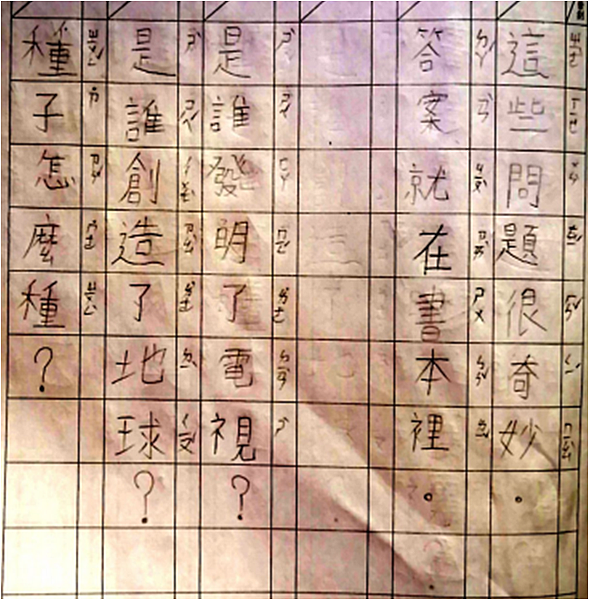 這些問題很奇妙。
答案就在書本裡。
是誰發明了電視?
是誰創造了地球?
種子怎麼種?